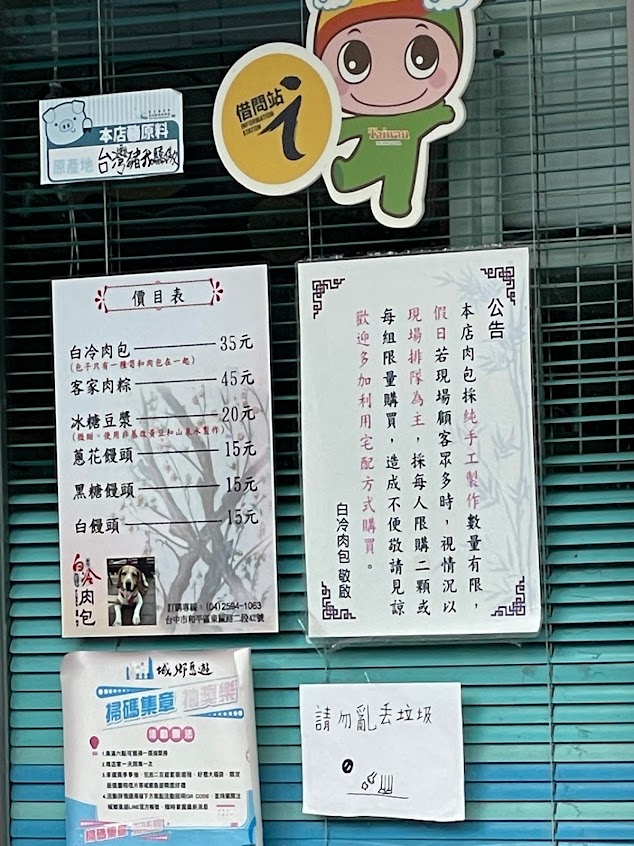 本店豬原料
原產地
台灣豬
借問站
INFORMATION
STATION
Taiwan
價目表
白冷肉包 35元
(包子只有一種筍和肉包在一起)
客家肉粽 45元
冰糖豆漿 20元
(微甜、使用非基改黃豆和山泉水製作)
蔥花饅頭 15元
黑糖饅頭 15元
白饅頭 15元
白冷肉包
訂購專線：(04)2594-1063
台中市和平區東關路二段42號
公告
本店肉包採純手工製作數量有限，
假日若現場顧客眾多時，視情況以
現場排隊為主，採每人限購二顆或
每組限量購買，造成不便敬請見諒
歡迎多加利用宅配方式購買。
白冷肉包 敬啟
城鄉島遊
掃碼集章 抽獎樂
活動辦法
1.集滿六點可獲得一張摸獎券
2.每店家一天限集一次
請勿亂丟垃圾
掃碼集章